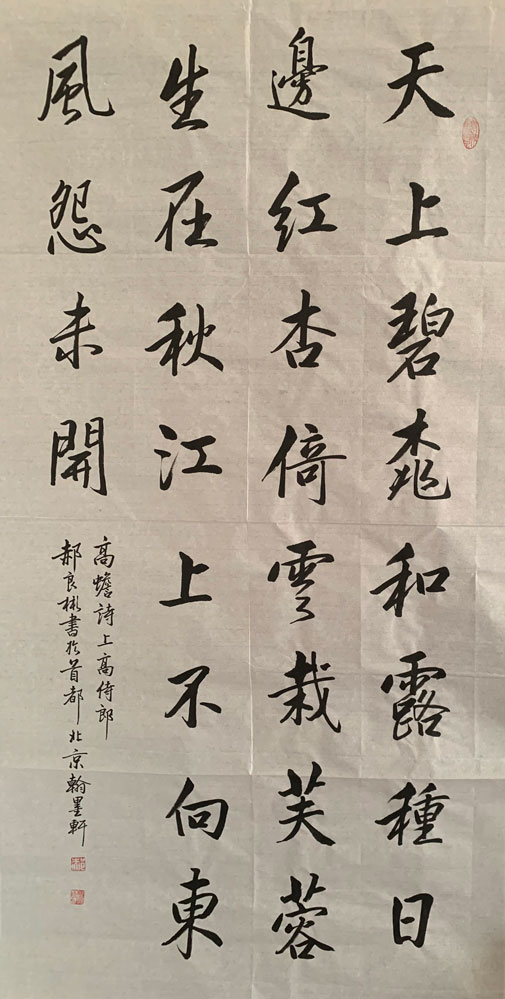 天上碧桃和露種日
邊紅杏倚雲栽芙蓉
生在秋江上不向東
風怨未開
高蟾詩上高侍郎
郝良彬書於首都北京翰墨軒